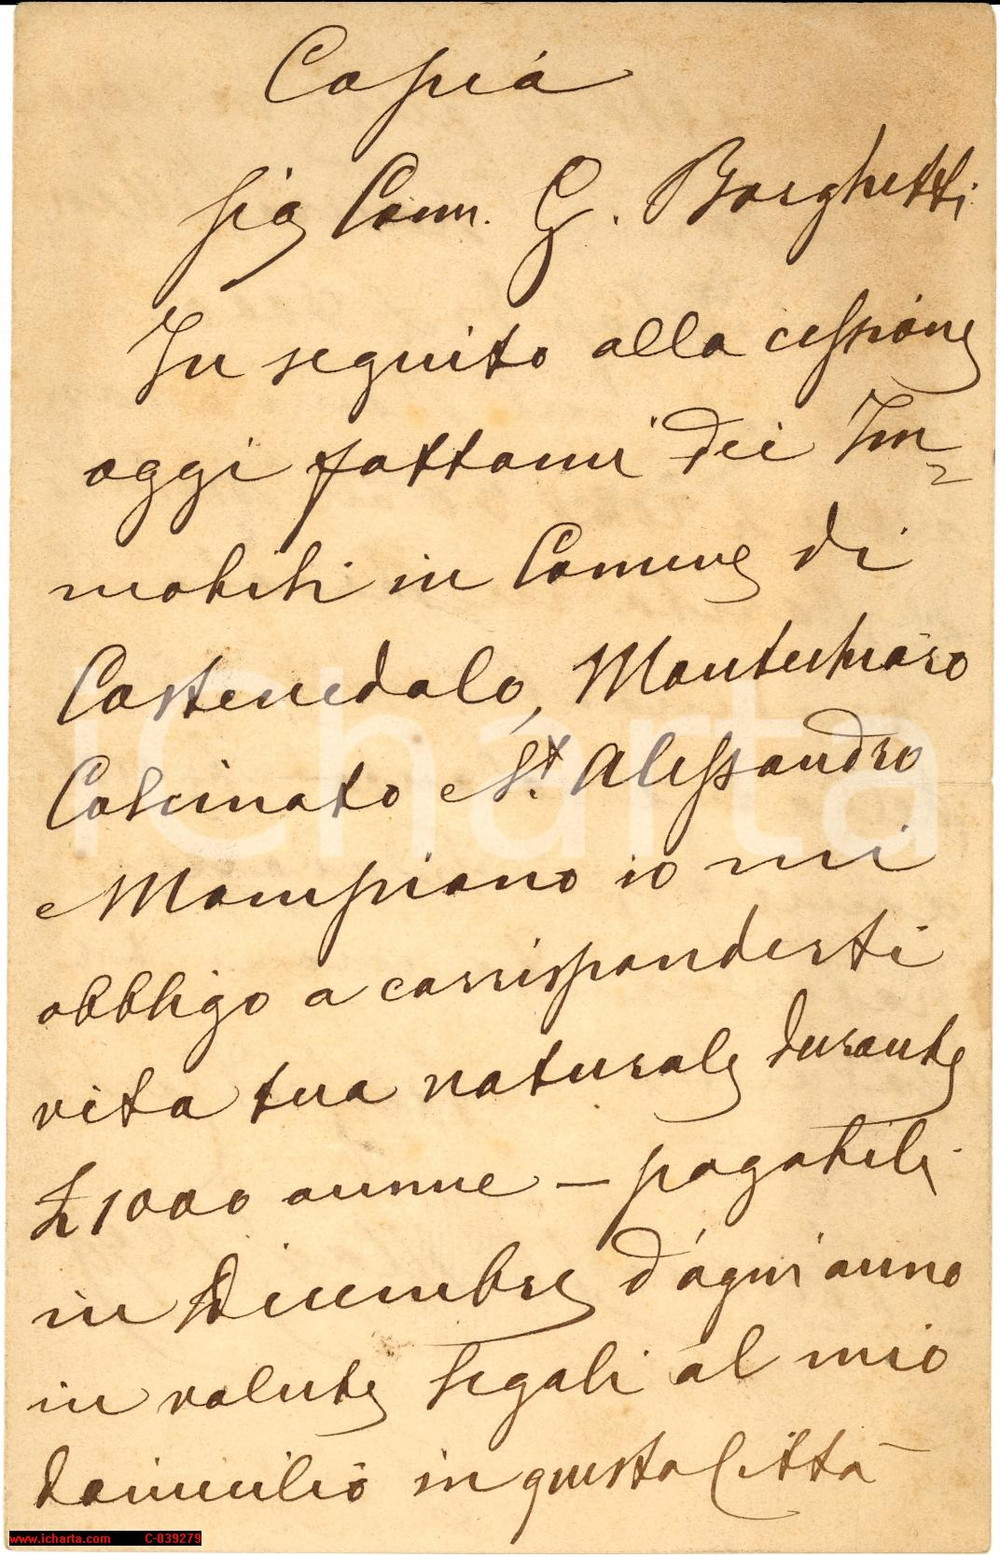 Copia
Sig Comm. G. Borghetti
In seguito alla cessione
oggi fattami dei Im=
mobili in Comune di
Castenedolo, Montechiaro
Calcinato e St. Alessandro
e Mompiano io mi
obbligo a corrisponderti
vita tua naturale durante
£ 1000 annue — pagabili
in Dicembre d'ogni anno
in valute legali al mio
domicilio in questa Città
iCharta
www.icharta.com C-039279